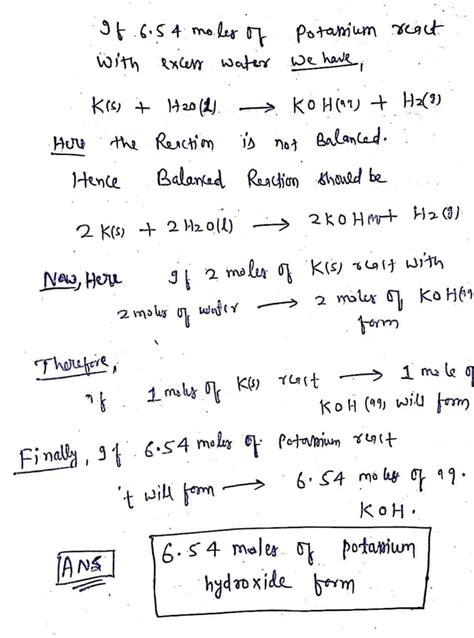 If 6.54 moles of Potassium react
with excess water we have,
K(s) + H2O(l) → KOH(aq) + H2(g)
Here the Reaction is not Balanced.
Hence Balanced Reaction should be
2 K(s) + 2 H2O(l) → 2KOH(aq) + H2(g)
Now, Here If 2 moles of K(s) react with
2 moles of water → 2 moles of KOH(aq
form
Therefore,
if 1 moles of K(s) react → 1 mole of
KOH (aq) will form
Finally, If 6.54 moles of Potassium react
't will form → 6.54 moles of aq.
KOH.
ANS 6.54 moles of potassium
hydroxide form